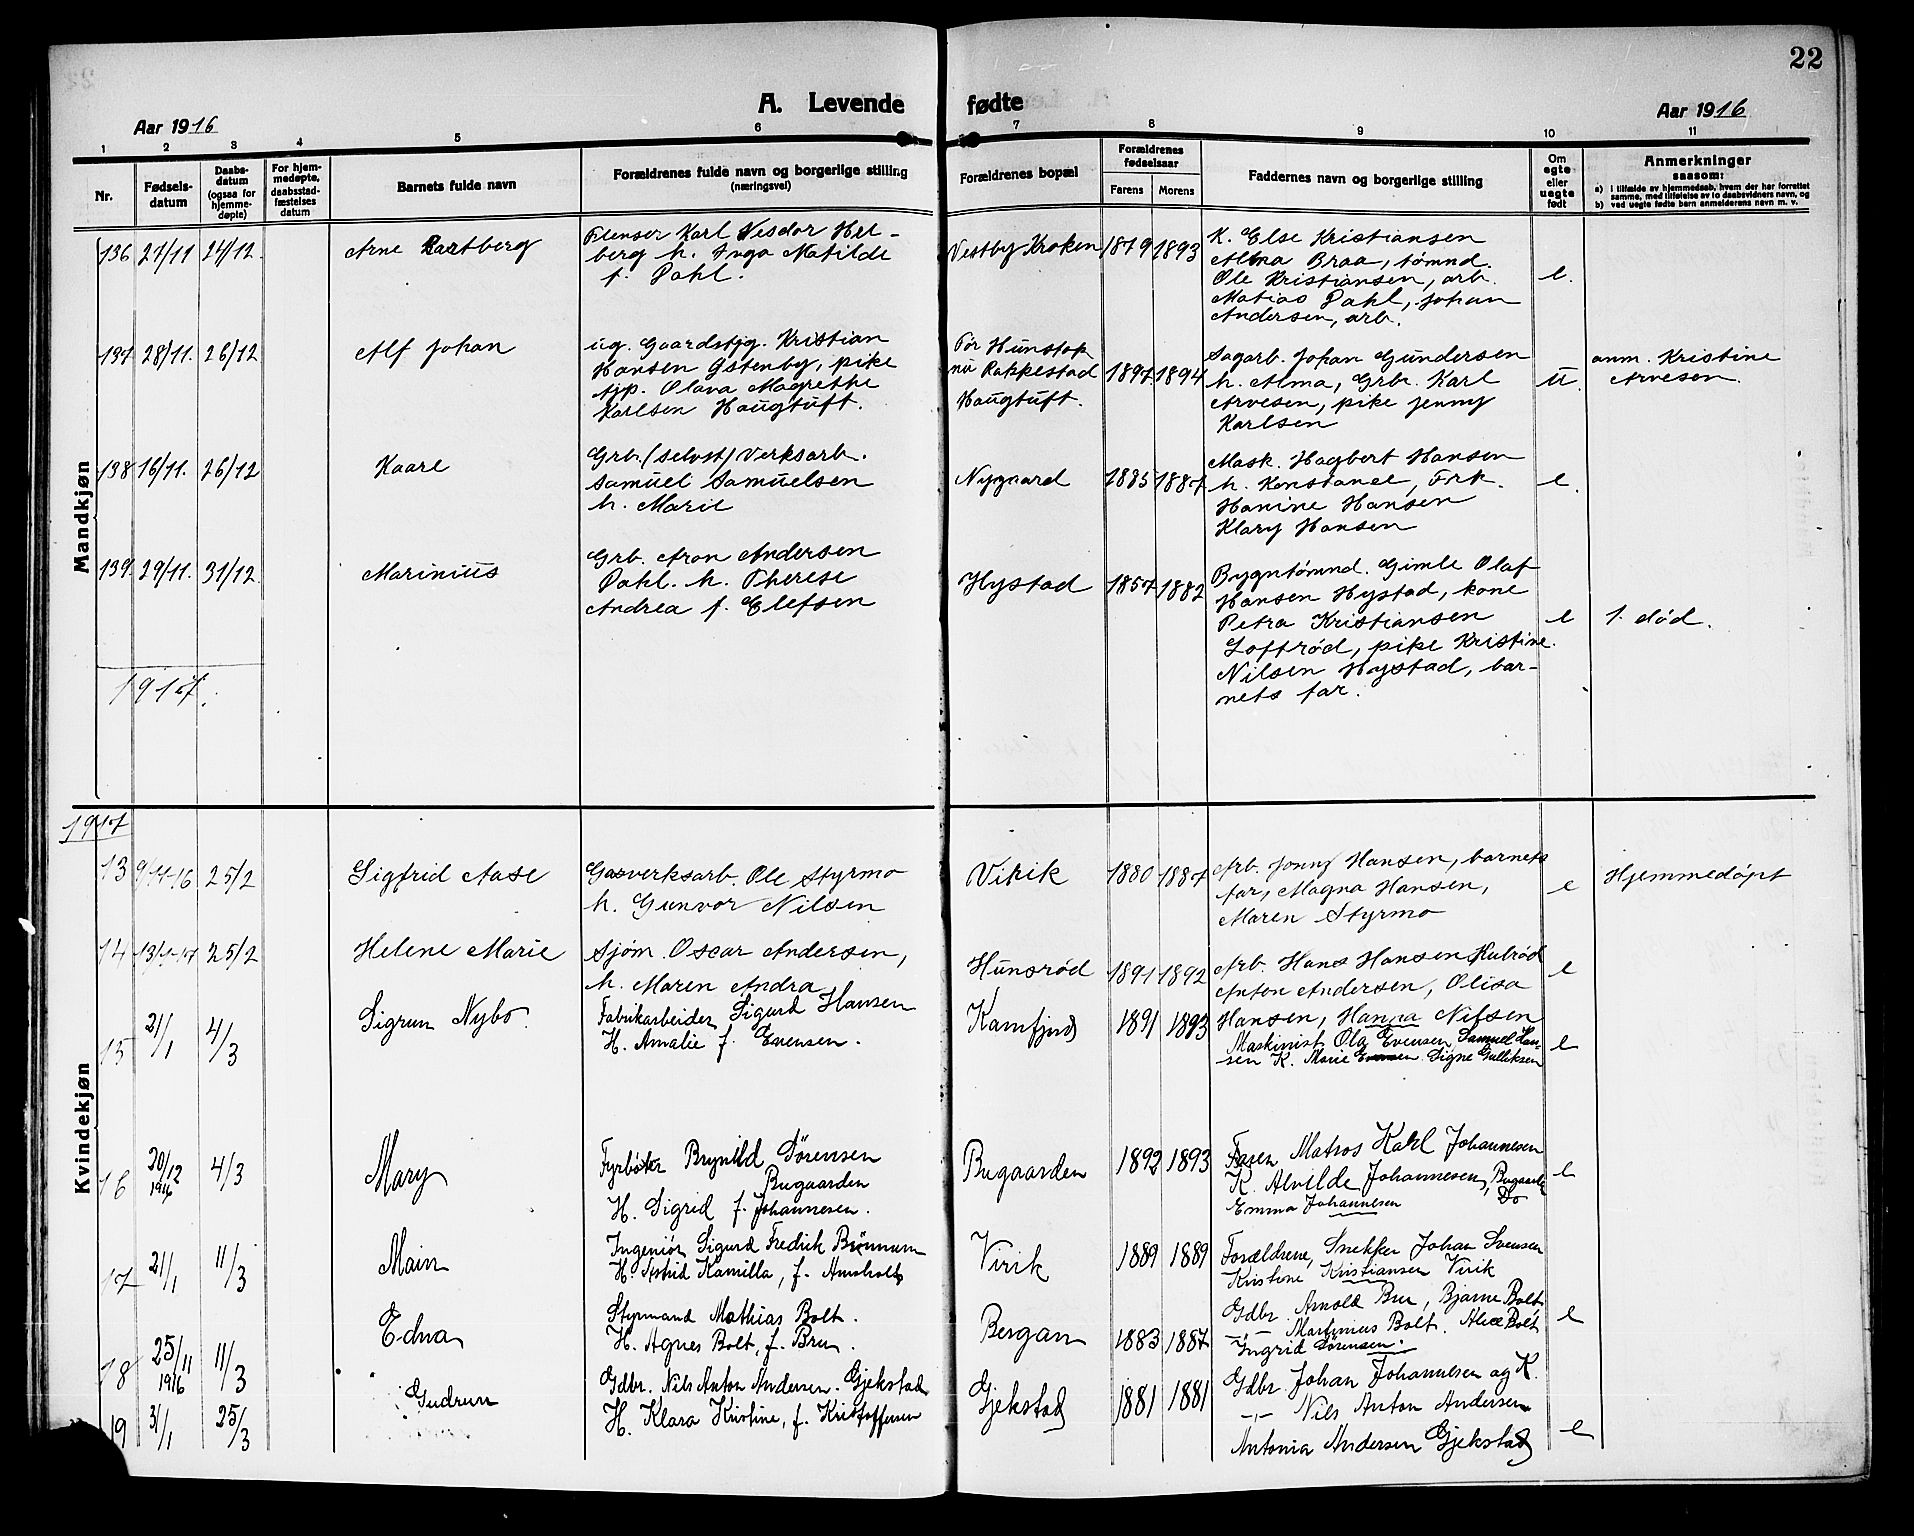 22
A. Levende fødte
Aar 1916
Aar 1916
1 2 3 4 5 6 7 8 9 10 11
Nr.
Fødsels-
datum
Daabs-
datum
(ogsaa for
hjemme-
døpte)
For hjem-
medøpte,
daabsstad-
fæstelses
datum
Barnets fulde navn
Forældrenes fulde navn og borgerlige stilling
(næringsvei)
Forældrenes bopæl
Forældrenes
fødselsaar
Farens Morens
Faddernes navn og borgerlige stilling
Om
egte
eller
uegte
født
Anmerkninger
saasom:
a) i tilfælde av hjemmedaab, hvem der har forrettet
samme, med tilføielse av to daabsvidners navn, og
b) ved uegte fødte barn anmelderens navn m. v.
Mandkjøn
136 27/11 24/12. Arne
Flenser Karl
berg h. Inga Matilde
f. Dahl.
Vestby Kroken 1879 1893
K. Else Kristiansen
Alma Braa, tømnd.
Ole Kristiansen, arb.
Matias Dahl, Johan
Andersen, arb.
e.
137 28/11. 26/12 Alf Johan
ug. Gaardstjg. Kristian
Hansen Østenby, pike
tjp. Olava Magrethe
Karlsen Haugtuft.
Før Hunstok
nu Rakkestad
Haugtuft.
1897 1894
Sagarb. Johan Gundersen
h. Alma, Grbr. Karl
Arvesen, pike Jenny
Karlsen
u.
anm. Kristine
Arvesen.
138 16/11. 26/12 Kaare
Grb. (selvst) Verksarb.
Samuel Samuelsen
h. Marie
Nygaard 1885 1887
Mask. Hagbert Hansen
h. Konstance, Frk.
Hanine Hansen
Klary Hansen
e.
139. 29/11. 31/12 Marinius
Grb. Aron Andersen
Dahl. h. Therese
Andrea f. Elefsen
Hystad 1857 1882
Bygntømnd. Gimle Olaf
Hansen Hystad, kone
Petra Kristiansen
Loftrød, pike Kristine
Nilsen Hystad, bar-
nets far.
e
1. død.
1917.
Kvindekjøn
1917
13 9/11-16 25/2 Sigfrid Aase
Gasverksarb. Ole Styrmo
h. Gunvor Nilsen
Virik 1880 1887
Arb. Jonny Hansen, barnets
far, Magna Hansen,
Maren Styrmo
e
Hjemmedøpt
14 13/1-17 25/2 Helene Marie
Sjøm. Oscar Andersen,
h. Maren Andra
Hunsrød 1891 1892
Arb. Hans Hansen
Anton Andersen, Olisa
Hansen, Hanna Nilsen
e
15 21/1 4/3 Sigrun Nybo.
Fabrikarbeider Sigurd Hansen
H. Amalie f. Evensen.
Kamfjord 1891 1893
Maskinist Ole Evensen, Samuel Han-
sen K. Marie Evensen Signe Gulliksen
e
16 20/12 1916 4/3 Mary
Fyrbøter Brynild Sørensen
Bugaarden
H. Sigrid f. Johannesen.
Bugaarden 1892 1893
Faren Matros Karl Johannesen
K. Alvilde Johannesen, Bugaarden
Emma Johannesen Do
e
17 21/1 11/3 Main
Ingeniør Sigurd Fredrik
H. Astrid Kamilla, f. Amsholt
Virik 1889 1889
Forældrene, Snekker Johan Svensen
Kristine Kristiansen Virik
e
18 25/11 1916 11/3 Edna
Styrmand Mathias Bolt.
H. Agnes Bolt, f. Bru.
Bergan 1883 1887
Gdbr. Arnold Bru, Bjarne Bolt
-"- Martinius Bolt. Alice Bolt
Ingrid Sørensen
19 3/1 25/3 Gudrun
Gdbr. Nils Anton Andersen. Gjekstad
H. Klara Kristine, f. Kristoffersen
Gjekstad 1881 1881
Gdbr. Johan Johannesen og K.
-"- Nils Anton Andersen
Antonia Andersen Gjekstad
e